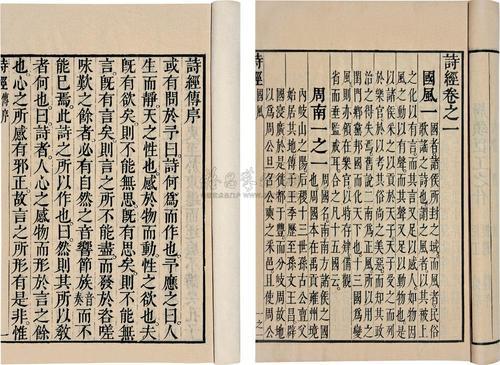 詩經傳序
或有問於予曰詩何為而作也予應之曰人
生而靜天之性也感於物而動性之欲也夫
既有欲矣則不能無思既有思矣則不能無
言既有言矣則言之所不能盡而發於咨嗟
咏歎之餘者必有自然之音響節族音奏而不
能已焉此詩之所以作也曰然則其所以敎
者何也曰詩者人心之感物而形於言之餘
也心之所感有邪正故言之所形有是非惟
詩經 傳序 一
詩經卷之一
國風一
國者諸侯所封之域而風者民俗
歌謠之詩也謂之風者以其被上
之化以有言而其言又足以感人如物因
風之動以有聲而其聲又足以動物也是
以諸侯采之以貢於天子天子受之而列
於樂官於以考其俗尚之美惡而知其政
治之得失焉舊說二南為正風所以用之
閨門鄉黨邦國而化天下也十三國為變
風則亦領在樂官以時存肄備觀
省而垂監戒耳合之凡十五國云
周南一之一
周國名南南方諸侯之國
也周國本在禹貢雍州境
內岐山之陽后稷十三世孫古公亶父
始居其地傳子王季歷至孫文王昌辟
國浸廣於是徙都于豐而分岐周故地
以為周公旦召公奭之采邑且使周公
詩經 國風